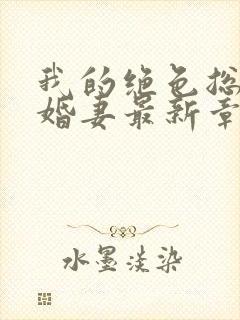 我的绝色总
婚妻最新章
水墨淡染